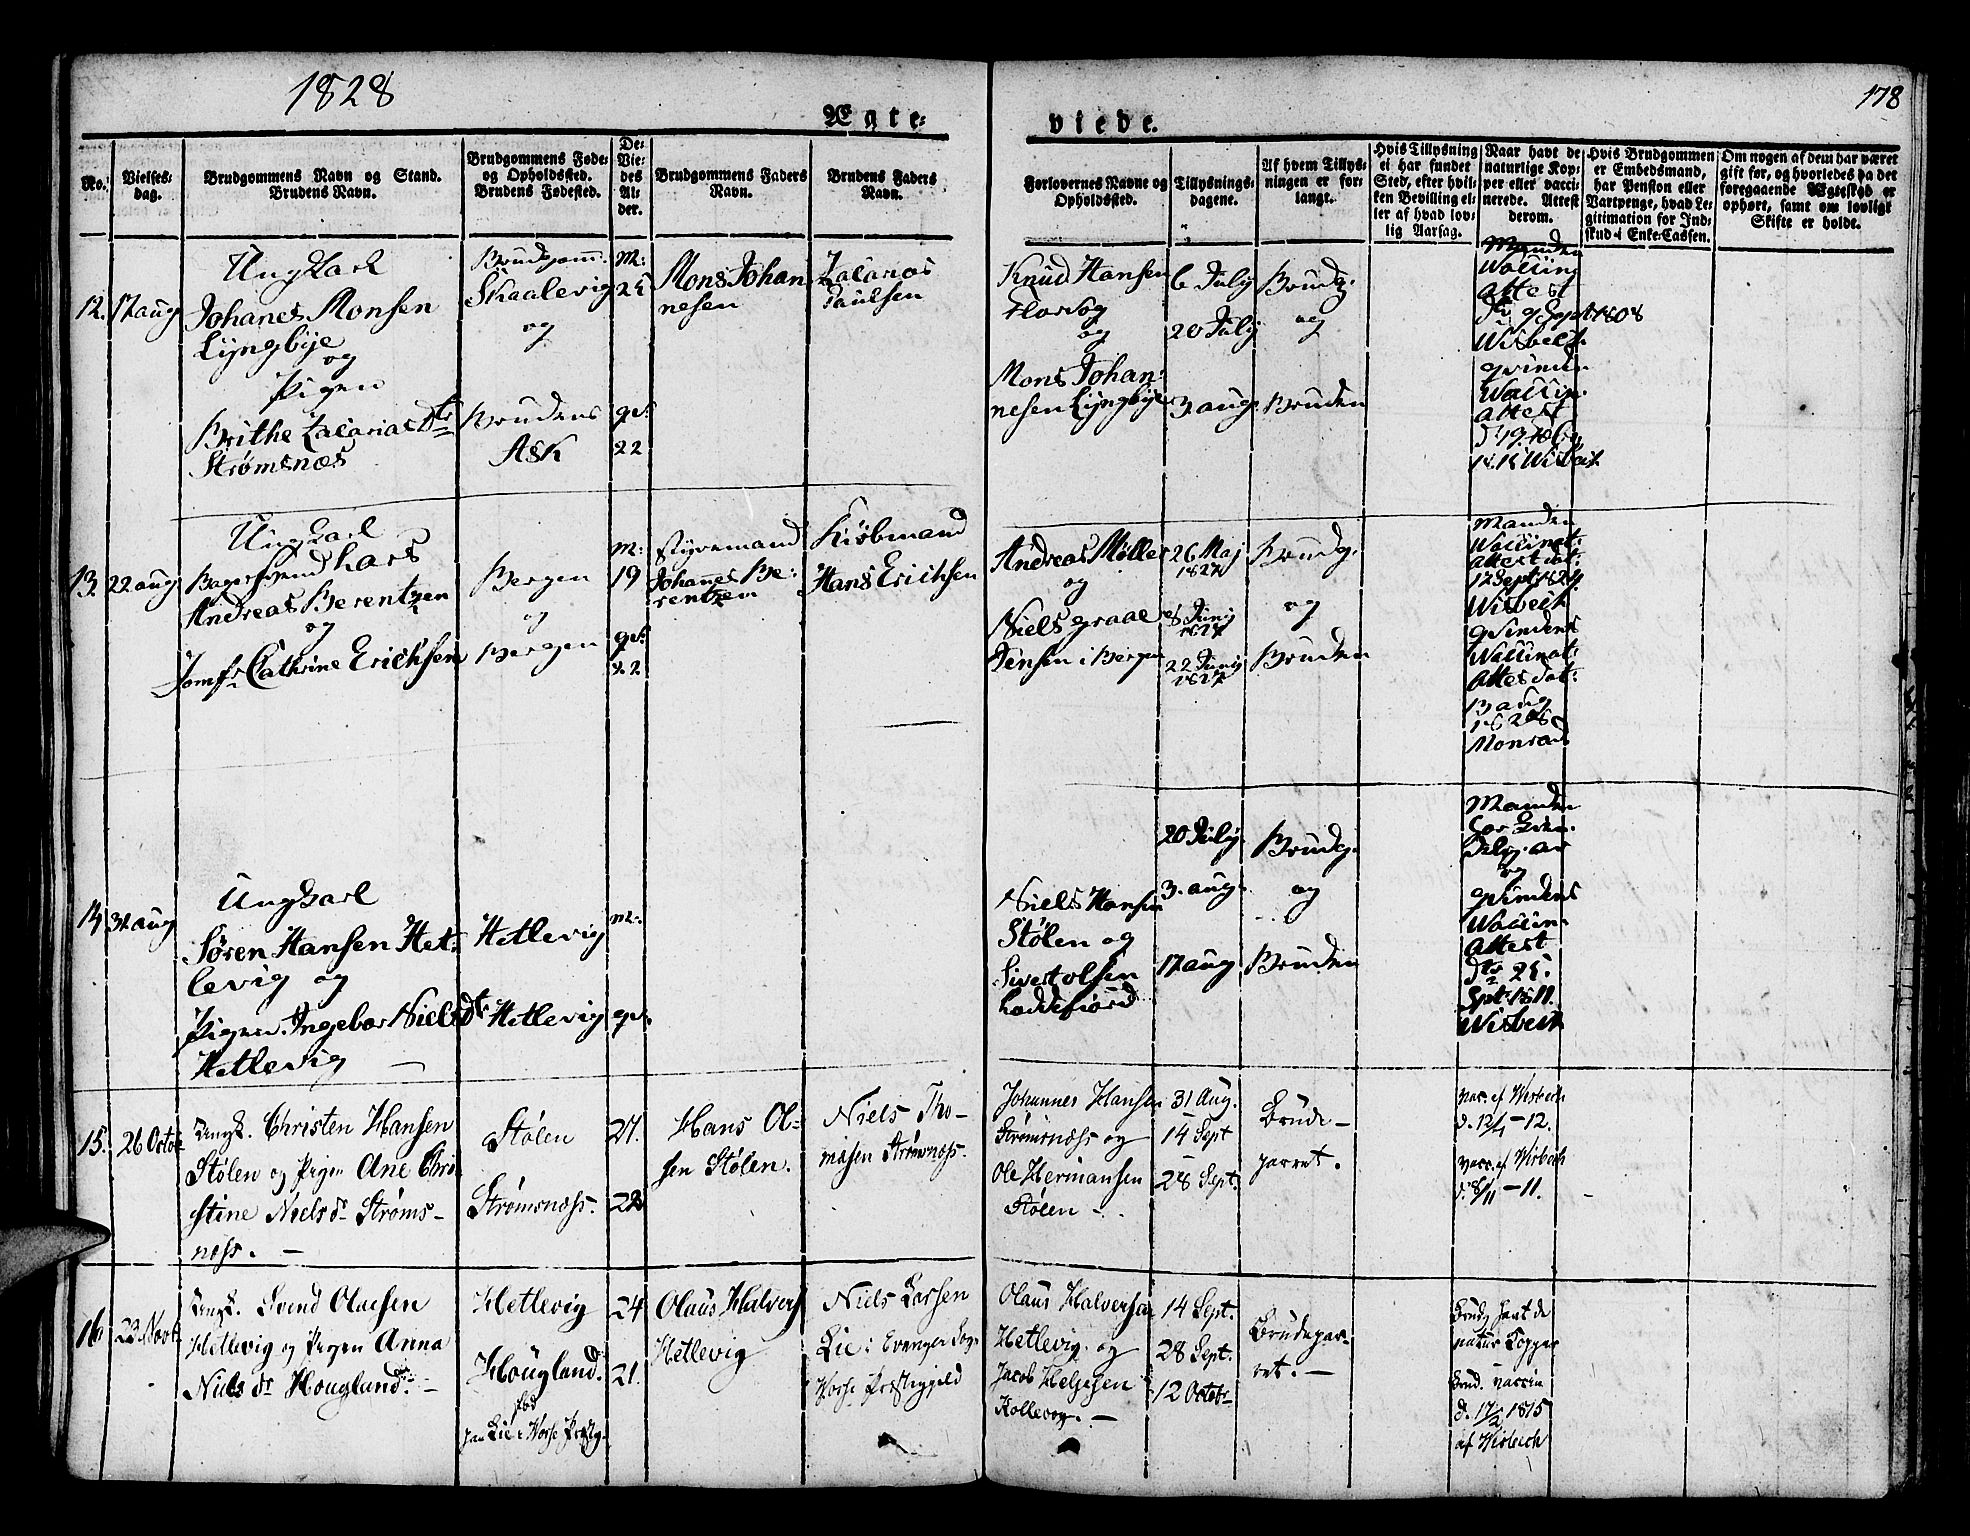 1828
178
Ægte-
viede.
No.
Vielses-
dag.
Brudgommens Navn og Stand.
Brudens Navn.
Brudgommens Føde-
og Opholdssted.
Brudens Fødested.
De
Vie-
des
Al-
der.
Brudgommens Faders
Navn.
Brudens Faders
Navn.
Forlovernes Navne og
Opholdssted.
Tillysnings-
dagene.
Af hvem Tillys-
ningen er for-
langt.
Hvis Tillysning
ei har fundet
Sted, efter hvil-
ken Bevilling el-
ler af hvad lov-
lig Aarsag.
Naar havt de
naturlige Kop-
per eller vacci-
nerede. Attest
derom.
Hvis Brudgommen
er Embedsmand,
har Pension eller
Vartpenge, hvad Le-
gitimation for Ind-
skud i Enke-Cassen.
Om nogen af dem har været
gift før, og hvorledes da det
foregaaende Ægteskab er
ophørt, samt om lovligt
Skifte er holdt.
12.
17 aug
Ungkarl
Johanes Monsen
Lyngbye
og
Pigen
Brithe Zacarias Dtr
Strømsnæs
Brudgom:
Skaalevig
og
Brudens
Ask
M:
25
qv:
22
Mons Johan
nesen
Zacarias
Paulsen
Knud Hansen
Florvog
og
Mons Johan:
nesen Lyngbye
6 July
20 July
3 aug
Brudg:
og
Bruden
Manden
Waccin
attest
9 Sept 1808
Wisbech
qvind
Waccin.
attest
Wisbech
13.
22 aug
Ungkarl
Bagersvend Lars
Andreas Berentzen
og
Jomfr Cathrine Erichsen
Bergen
og
Bergen
M:
19
qv:
22
Styremand
Johannes Be:
rentzen
Kiøbmand
Hans Erichsen
Andreas Møller
og
Niels Graae
Jensen i Bergen
26 Maj
1827
8 Juny
1827
22 Juny
1827
Brudg.
og
Bruden
Manden
Waccinat:
attest dat:
12 Sept 1824
Wisbech
qvindens
Waccinat:
attes dat:
13 aug
1828
Monrad
14
31 aug
Ungkarl
Søren Hansen Het-
levig og
Pigen Ingebor Niels Dtr
Hetlevig
Hetlevig
Hetlevig
M:
qv:
Niels Hansen
Stølen og
Sivert Olsen
Laddefiord
20 July.
3. aug.
17 aug
Brudg.
og
Bruden
Manden
og
qvindens
Waccin
attest
dtr 25.
Spt: 1811.
Wisbech
15.
26 Octob
Ungk. Christen Hansen
Stølen og Pigen Ane Chri
stine Nielsdr Strøms-
næss.
Stølen
Strømsnæss.
27.
28
Hans Ol-
sen Stølen.
Niels Tho-
masen Strømnæss.
Johannes Hansen
Strømsnæss og
Ole Hermansen
Stølen
31 Aug.
14 Sept
28 Sept.
Brude-
parret.
vacc. af Wisbech
d. 12/4 - 12.
vacc. af Wisbech
d. 8/11 - 11.
16
23 Novb
Ungk. Svend Olaesen
Hetlevig og Pigen Anna
Niels dr Hougland.
Hetlevig
Hougland.
fød
paa Lie i Horse Præstg.
24
21.
Olaus Halvers
Hetlevig
Niels Larsen
Lie i Evanger Sogn
Præstegjeld
Olaus Halversen
Hetlevig. og
Jacob Helgesen
Kollevog.
14 Sept.
28 Sept.
12 Octob
Brudepar-
ret.
Brudg havt de
natur Copper
Brud. vaccin
d. 17/2 1815
af Wisbech